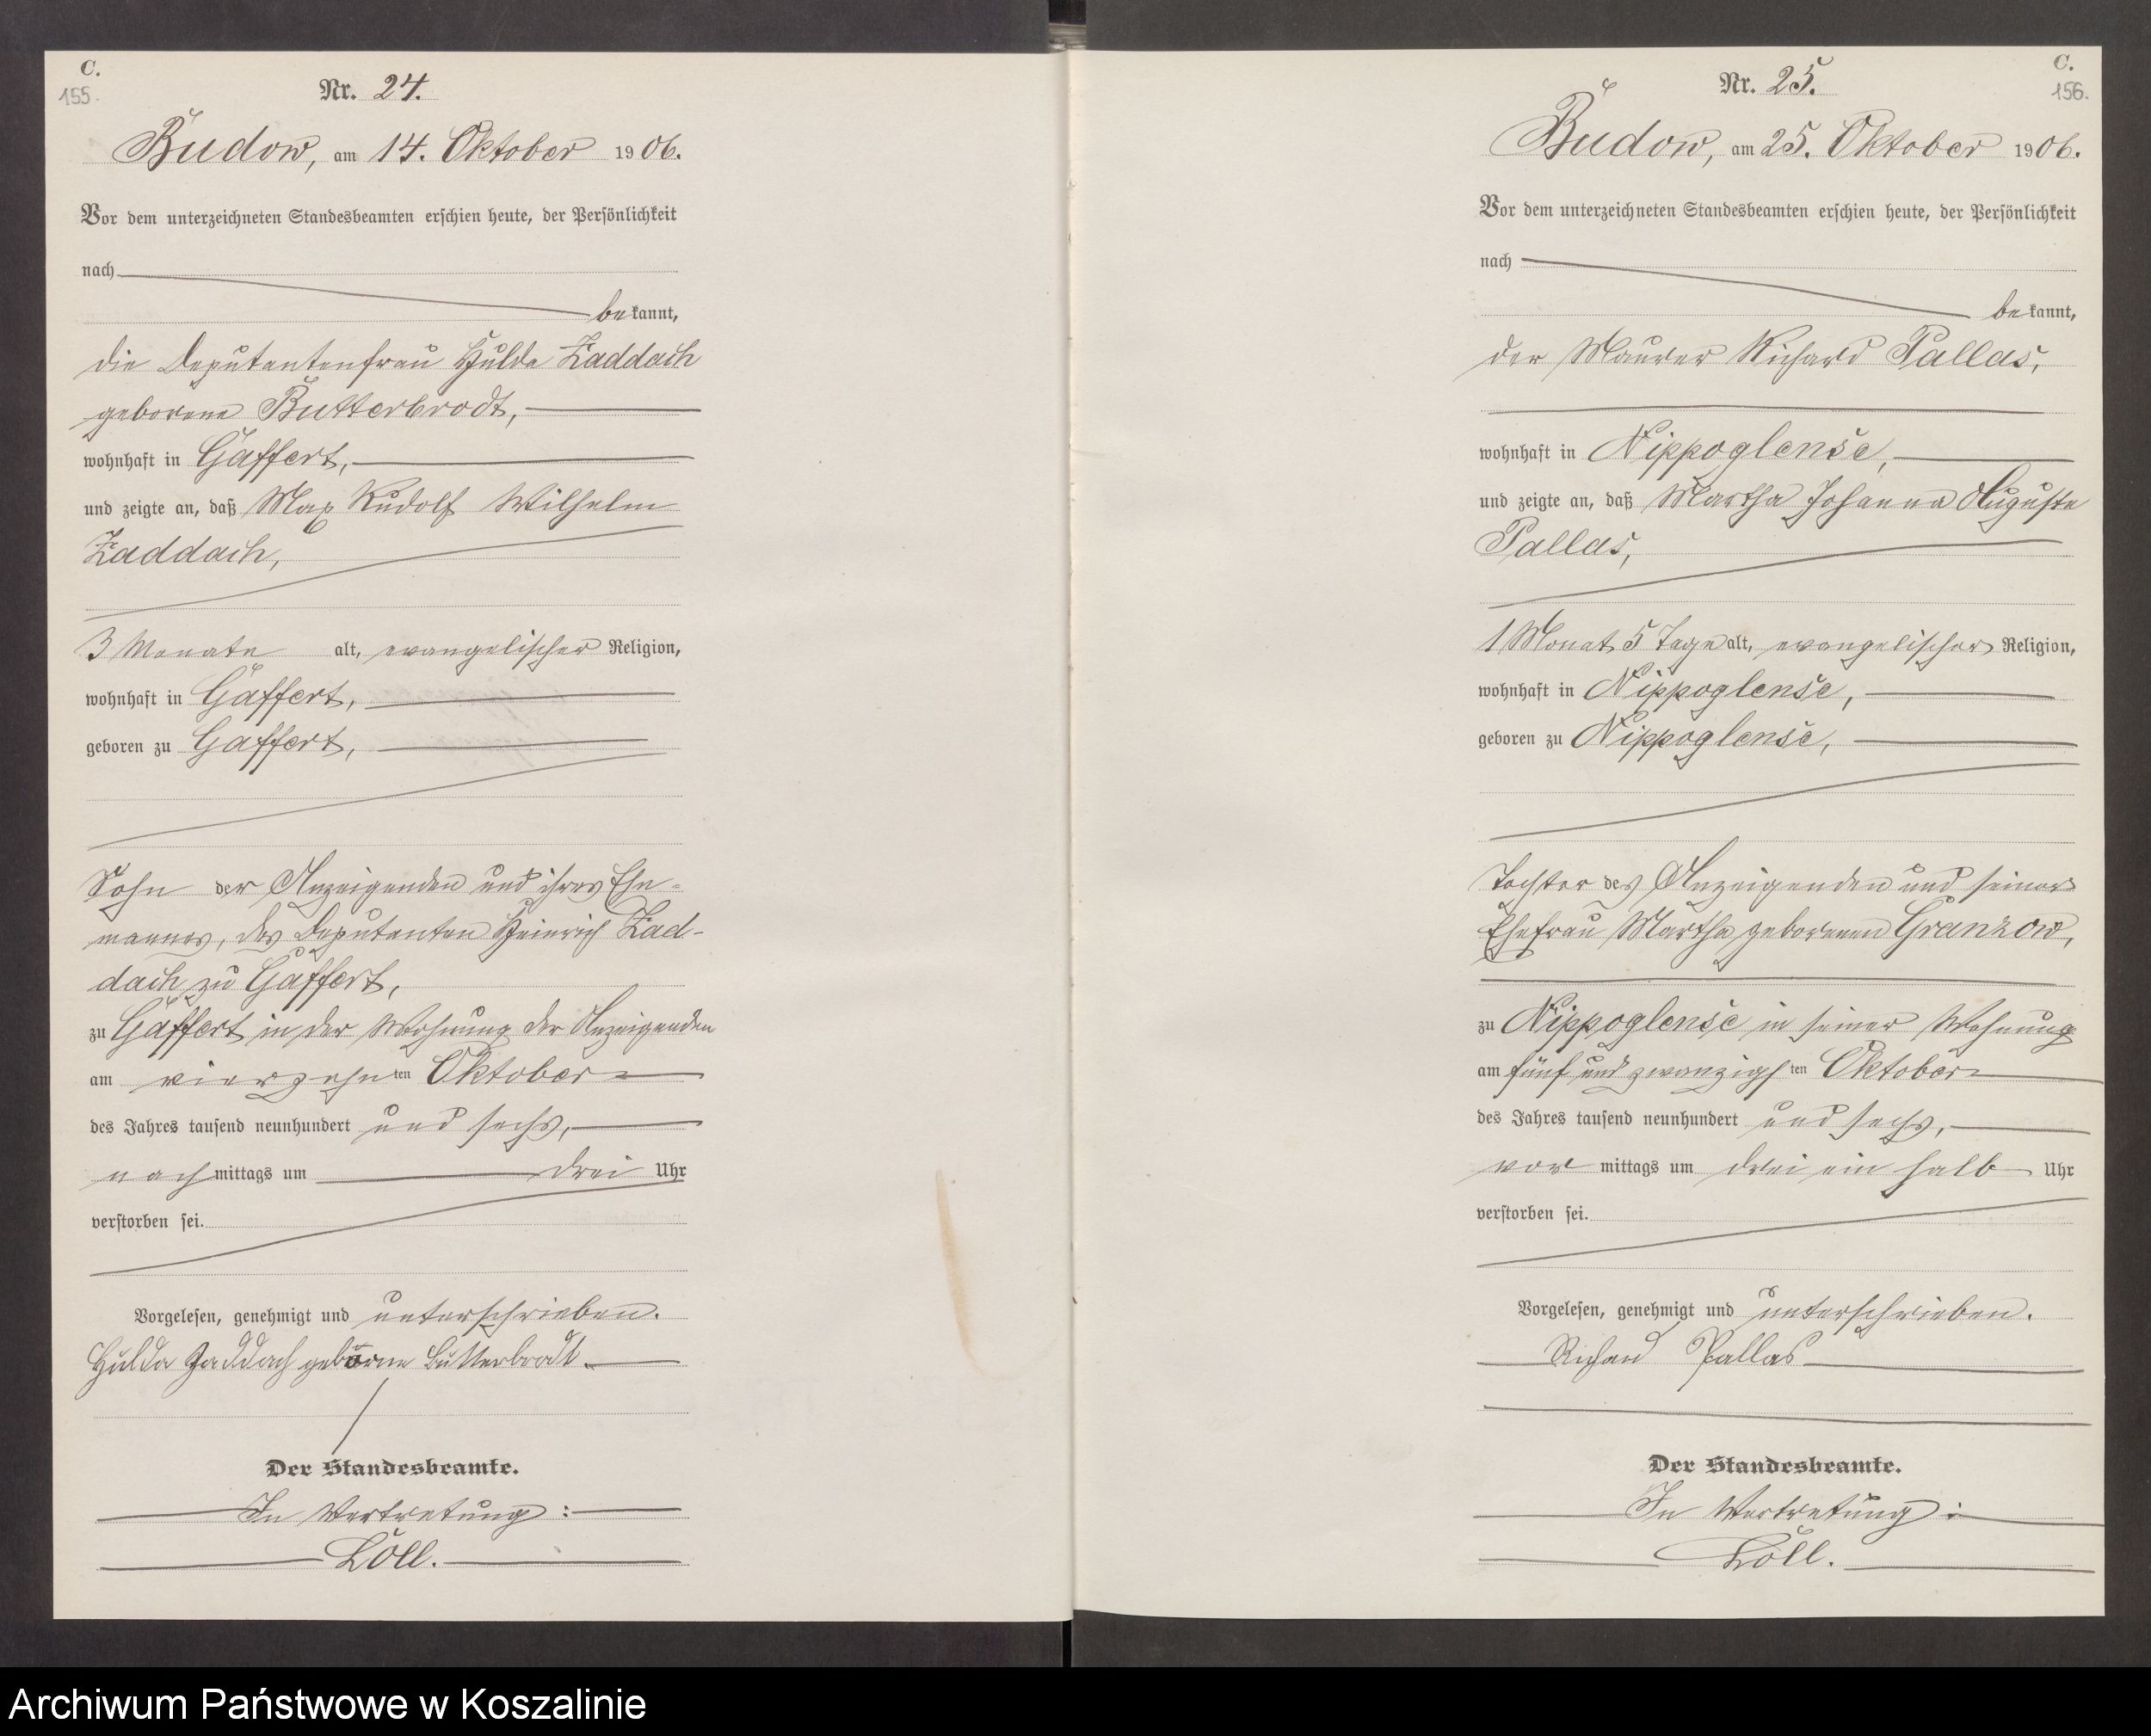 C.
155.
Nr. 24.
Budow, am 14. Oktober 1906.
Vor dem unterzeichneten Standesbeamten erschien heute, der Persönlichkeit
nach
bekannt,
die Deputantenfrau Hulda Zaddach
geborene Butterbrodt,
wohnhaft in Gaffert,
und zeigte an, daß Max Rudolf Wilhelm
Zaddach,
3 Monate alt, evangelischer Religion,
wohnhaft in Gaffert,
geboren zu Gaffert,
Sohn der Anzeigenden und ihres Ehe-
mannes, des Deputanten Heinrich Zad-
dach zu Gaffert,
zu Gaffert in der Wohnung der Anzeigenden
am vierzehnten Oktober
des Jahres tausend neunhundert und sechs,
nachmittags um drei Uhr
verstorben sei.
Vorgelesen, genehmigt und unterschrieben.
Hulda Zaddach geborne Butterbrodt.
Der Standesbeamte.
In Vertretung:
Löll.
C.
156.
Nr. 25.
Budow, am 25. Oktober 1906.
Vor dem unterzeichneten Standesbeamten erschien heute, der Persönlichkeit
nach
bekannt,
der Maurer Richard Pallas,
wohnhaft in Nippoglense,
und zeigte an, daß Martha Johanna Auguste
Pallas,
1 Monat 5 Tage alt, evangelischer Religion,
wohnhaft in Nippoglense,
geboren zu Nippoglense,
Tochter des Anzeigenden und seiner
Ehefrau Martha geborenen Granzow,
zu Nippoglense in seiner Wohnung
am fünf und zwanzigsten Oktober
des Jahres tausend neunhundert und sechs,
vormittags um drei ein halb Uhr
verstorben sei.
Vorgelesen, genehmigt und unterschrieben.
Richard Pallas
Der Standesbeamte.
In Vertretung:
Löll.
Archiwum Państwowe w Koszalinie